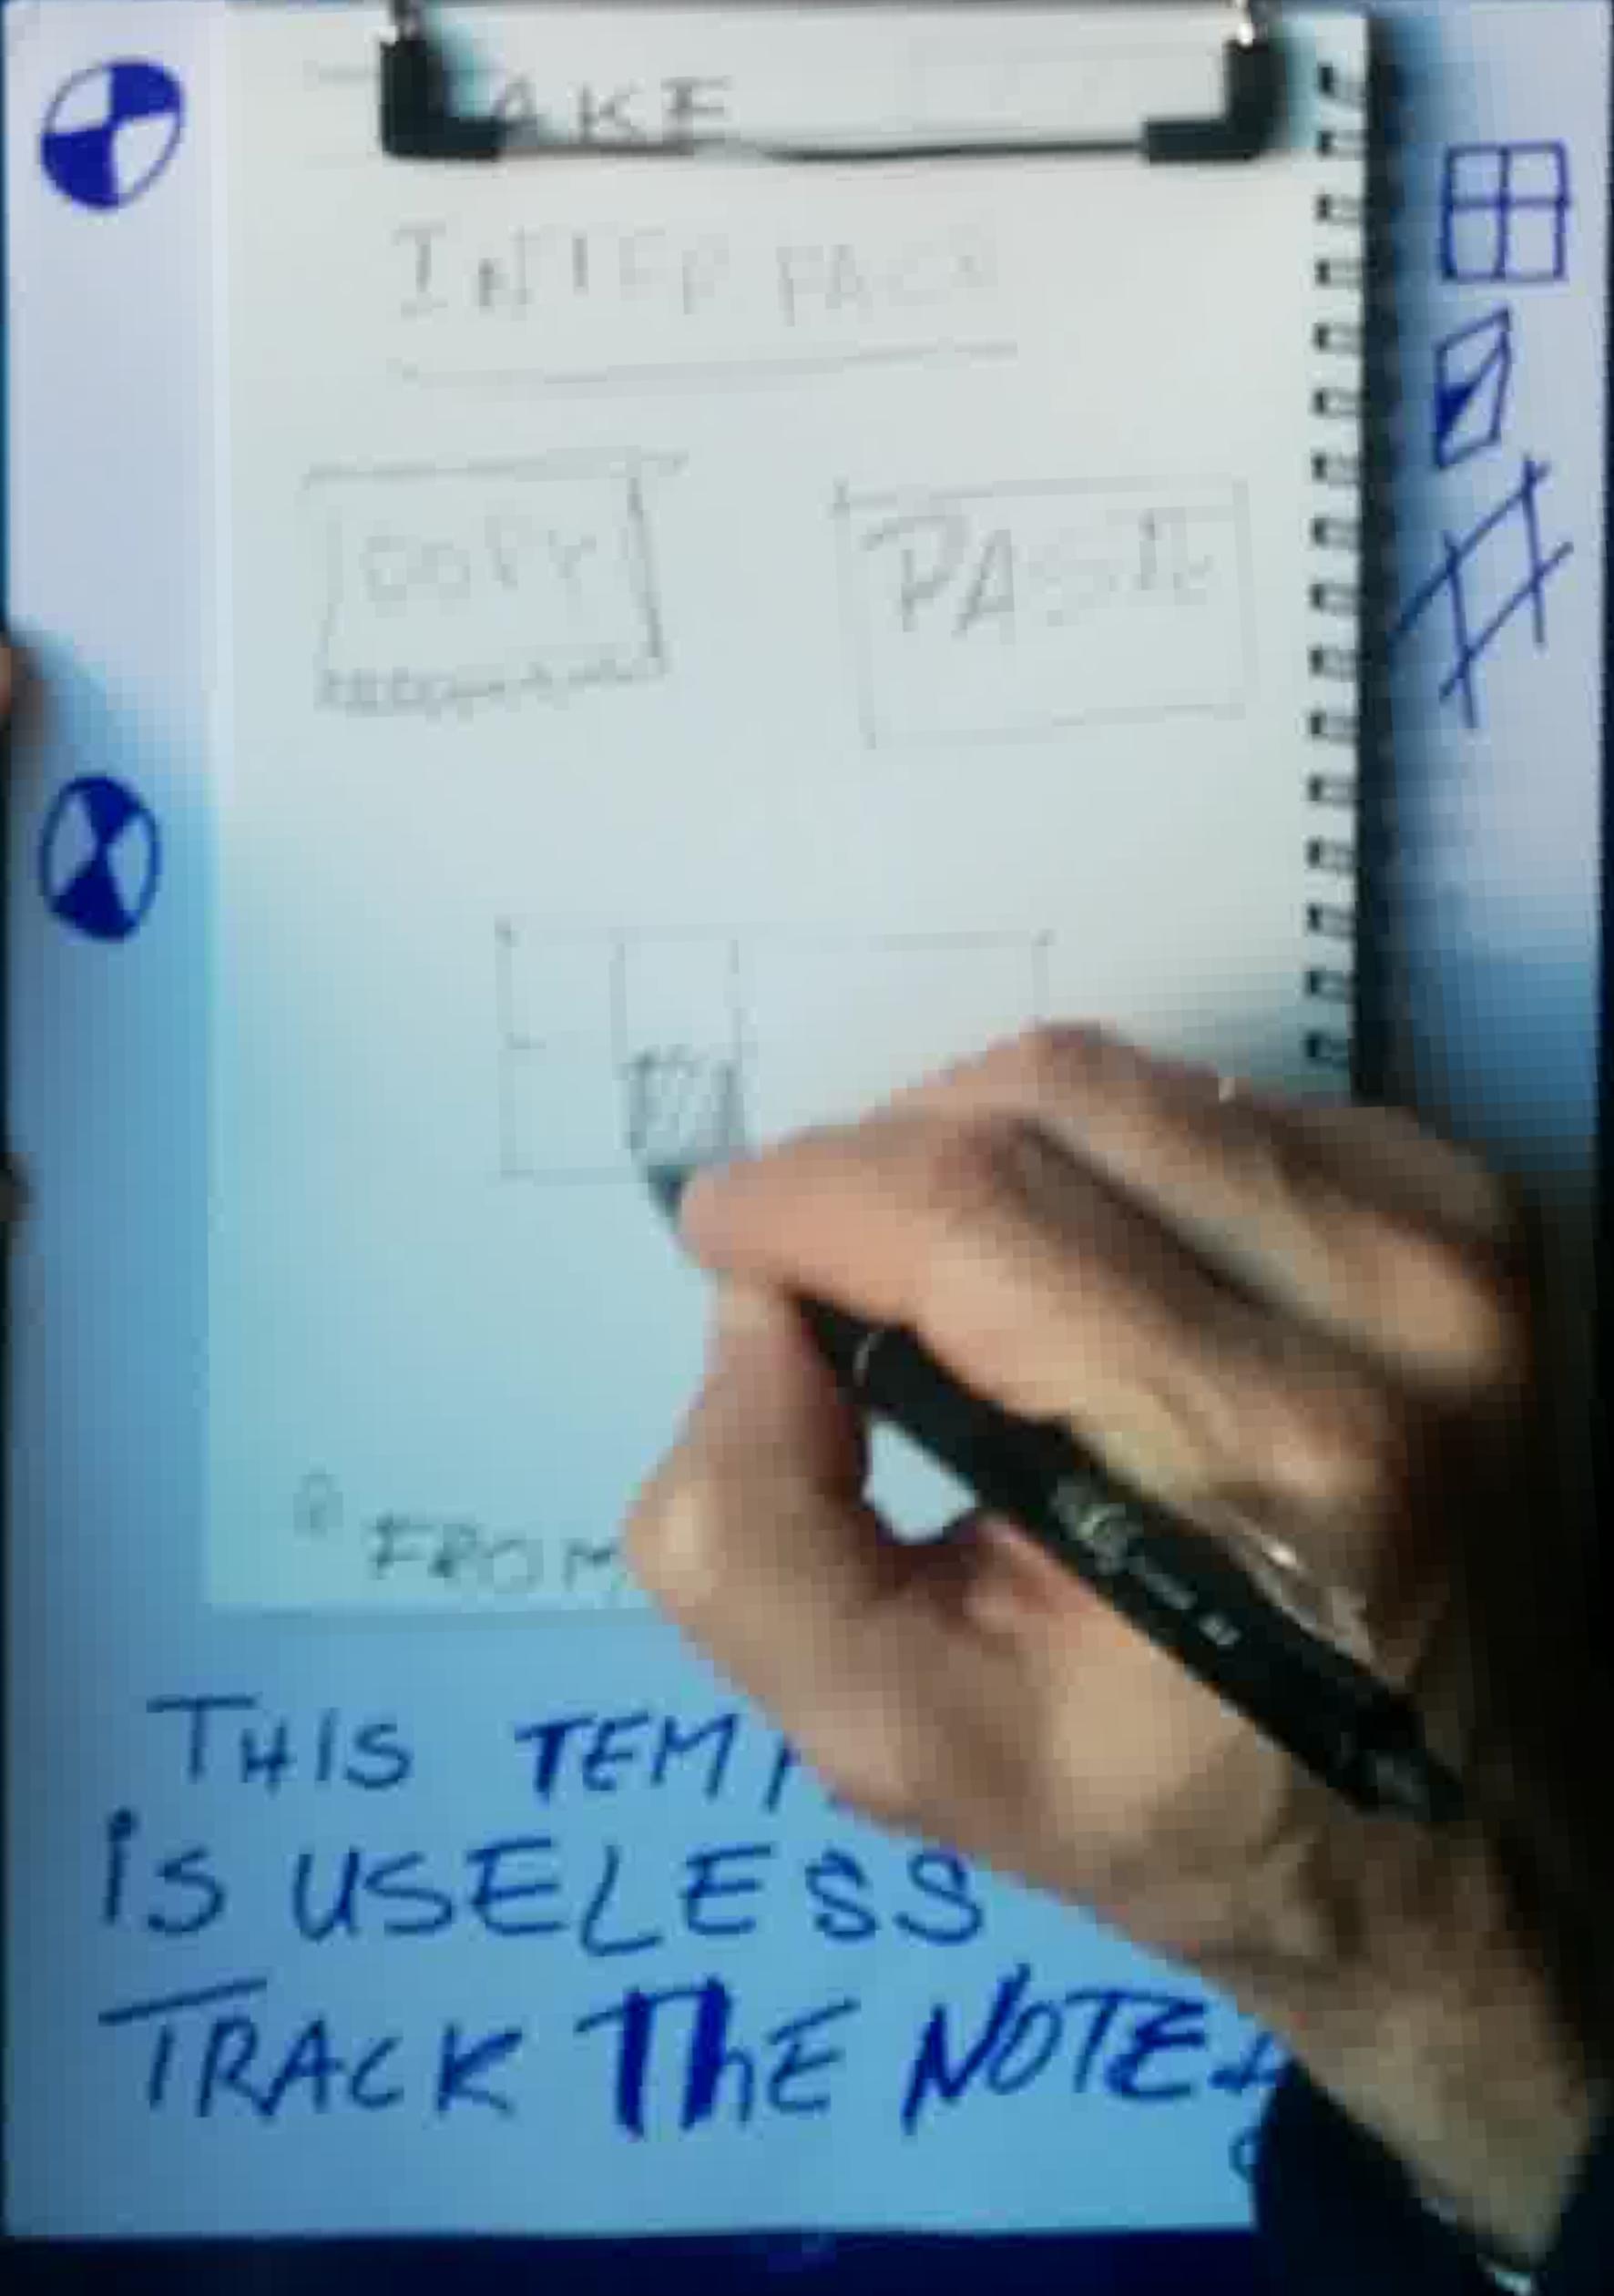 AKE
INTERFACE
COPY PASTE
FROM
THIS TEMP
is USELESS
TRACK ThE NOTE